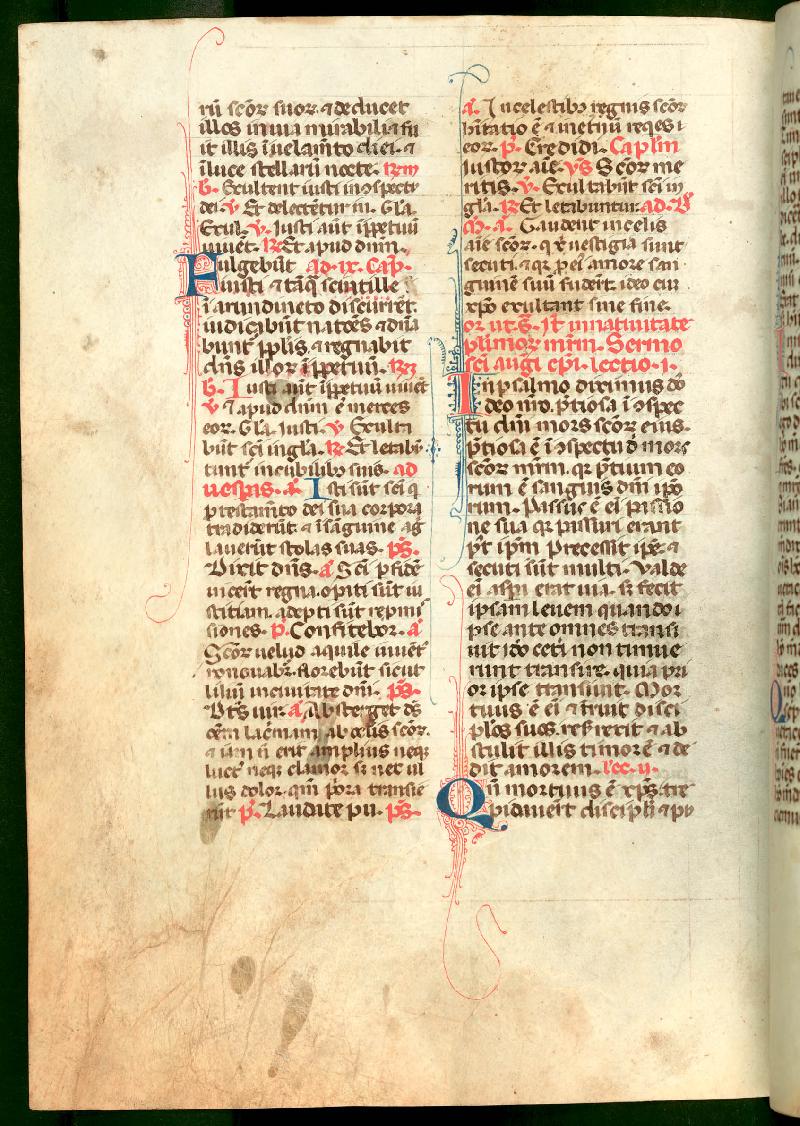 rū scōr suor. ⁊ deducet
illos in uia mirabili ⁊ fu
it illis ī uelamīto diei. ⁊
ī luce stellarū nocte. Rm
b. Exultent iusti in ɔspectu
dei. v̄. Et delectētur in. Gl̄a.
Exul. v̄. Iusti aūt īppetuū
uiuēt. R Et apud dn̄m.
Fulgebūt ad. ix. Cap.
iusti ⁊ tāq̄ scintille
ī arundineto discurrēt.
iudicabūt natōēs ⁊ dn̄a
būnt pplis. ⁊ regnabit
dn̄s illor īppetuū. R
b. Iusti aūt īppetuū uiuēt
v̄ ⁊ apud dn̄m ē merces
eor. Gl̄a. Iusti. v̄ Exulta
būt sc̄i in gl̄a. R Et letabū
tunt in cubilibȝ suis. ad
uesp̄as. a. Isti sūt sc̄i q
p testamīto dei sua corpora
tradiderūt. ⁊ ī sāguine ag
lauerūt stolas suas. ps̄.
Dixit dn̄s. a Sc̄i p fidē
uicerūt regna. opati sūt iu
stitiam. adepti sūt repmi
siones. p̄. Confitebor. a
Scōr uelud aquile iuuēt
renouabr̄. florebūt sicut
liliū in ciuitate dn̄i. ps̄.
Bt̄s uir. a Absterget ds̄
ōēm lac̄mam ab oclis scōr.
⁊ iam n̄ erit amplius neqȝ
luct neqȝ clamor sȝ nec ul
lus dolor. qm̄ p̄ora transie
rūt p̄. Laudate pu. ps̄.
a. In celestibȝ regnis scōr
h̄itatio ē ⁊ in et̄nū reqes i
eor. p̄. Credidi. Caplm
Iustor aīe. vs̄ Scōr me
ritis. v̄. Exultabūt sc̄i in
gl̄a. R Et letabuntur. ad. B
M. a. Gaudent in celis
aīe scōr. q xp̄i uestigia sunt
secuti. ⁊ qr p ei amore san
guinē suū fudert. ideo cū
xp̄o exultant sine fine.
or ut. s. It̄ in natiuitate
plimor mr̄m. Sermo
sc̄i augī ep̄i. lectio. i.
In psalmo diximus do
deo nr̄o. p̄tiosa ī ɔspec
tu dn̄i mors scōr eius.
p̄tiosa ē ī ɔspectu d̄ mors
scōr mr̄m. qr p̄tium eo
rum ē sanguis dn̄i ipo
rum. Passus ē ei passio
ne sua qr passuri erant
p̄t ip̄m. Precessit ip̄e. ⁊
secuti sūt multi. Valde
ei asp̄a erat uia. sȝ fecit
ipsam leuem quando i
pse ante omnes transi
uit. ido cet̄i non timue
runt transire. quia pri
or ipse transiuit. Mor
tuus ē ei ⁊ fruit disci
plos suos. refrexit ⁊ ab
stulit illis timorē ⁊ de
dit amorem. lec. ii.
Qn̄ mortuus ē xp̄s. tre
pidauert discipli ⁊ pp